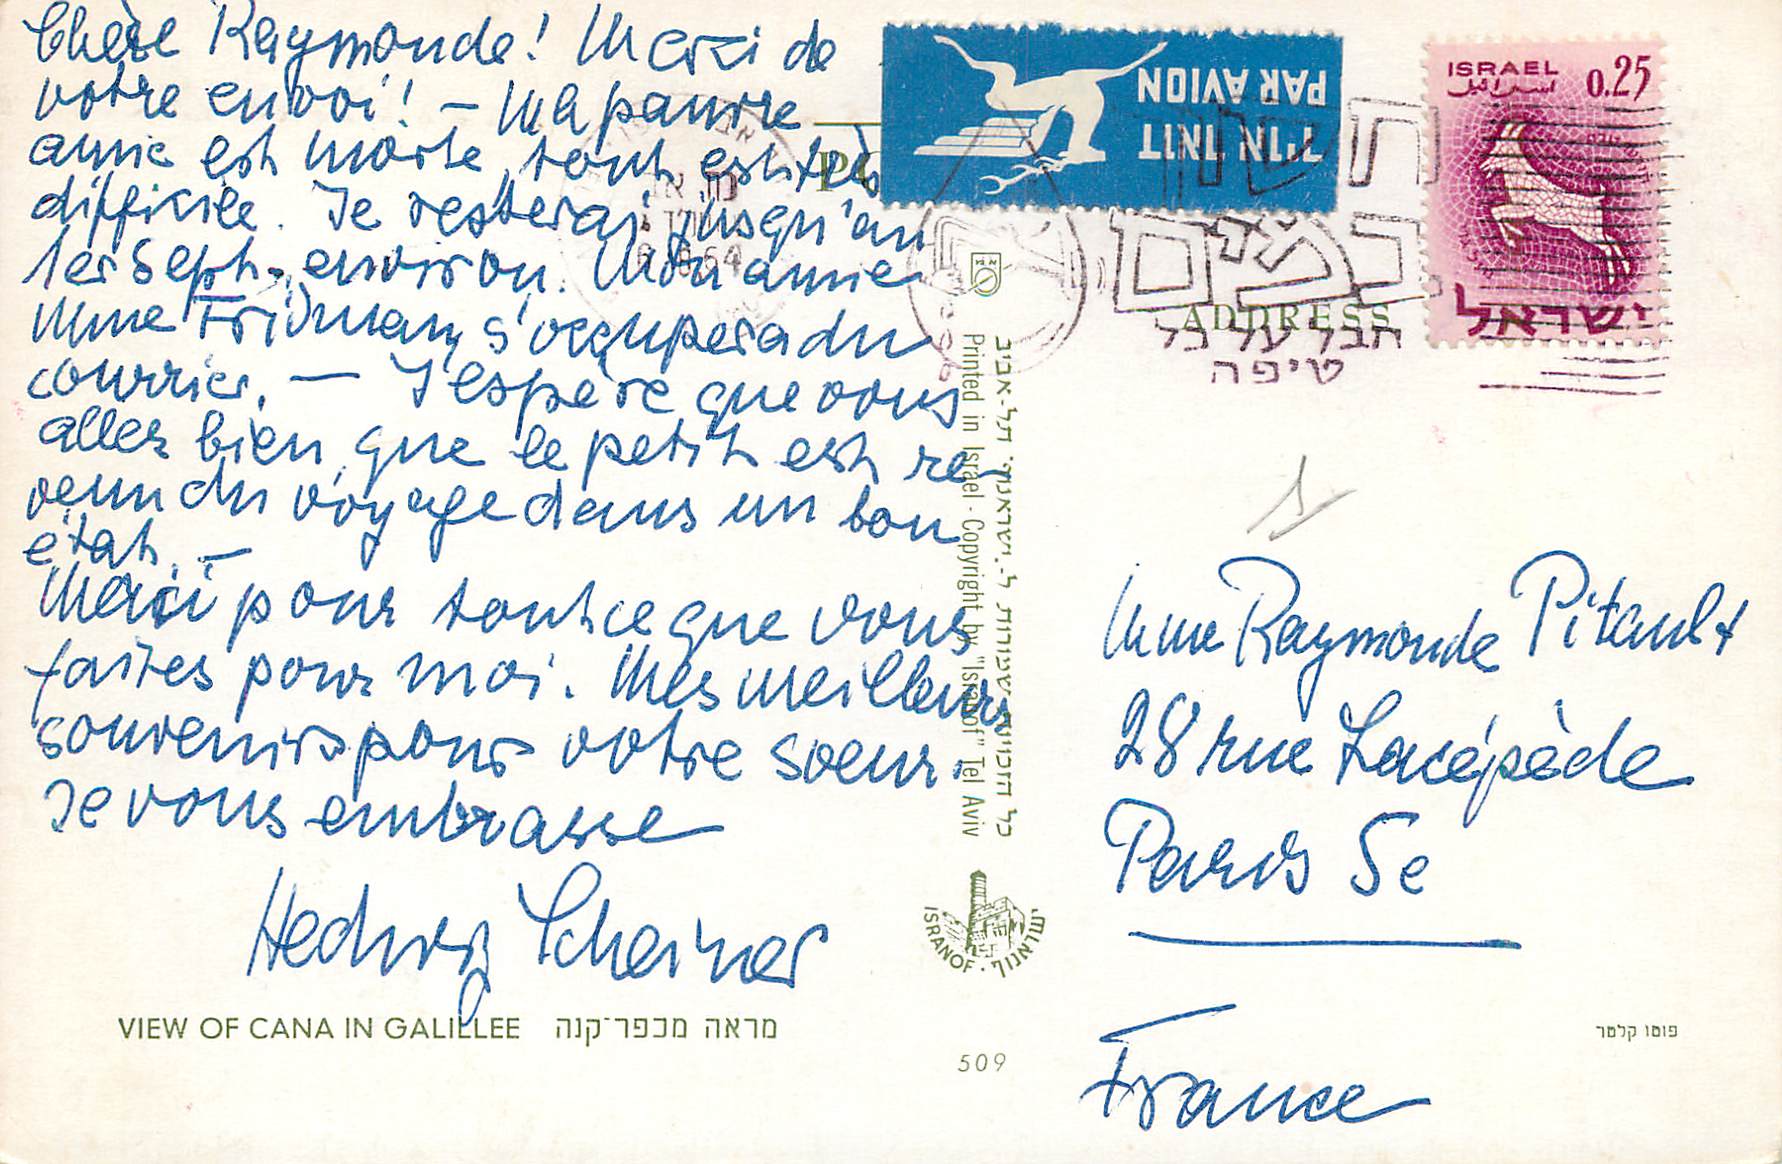 Chère Raymonde! Merci de
votre envoi! – Ma pauvre
amie est morte, tout est très
difficile. Je resterai jusqu'au
1er Sept. environ. Mon amie
Mme Fridman s'occupera du
courrier. — J'espère que vous
allez bien, que le petit est re-
venu du voyage dans un bon
état. –
Merci pour tout ce que vous
faites pour moi. Mes meilleurs
souvenirs pour votre soeur.
Je vous embrasse
Hedwig Scheiner
VIEW OF CANA IN GALILLEE מראה מכפר־קנה
PAR AVION
בדואר אויר
ISRAEL 0.25
اسرائيل
ישראל
חשוך
במים
חבל על כל
טיפה
ADDRESS
Printed in Israel - Copyright by "Isranof" Tel Aviv
כל הזכויות שמורות ל-ישראנוף תל-אביב
ISRANOF · ישראנוף
509
Mme Raymonde Pitault
28 rue Lacépède
Paris 5e
France
פוטו קלטר